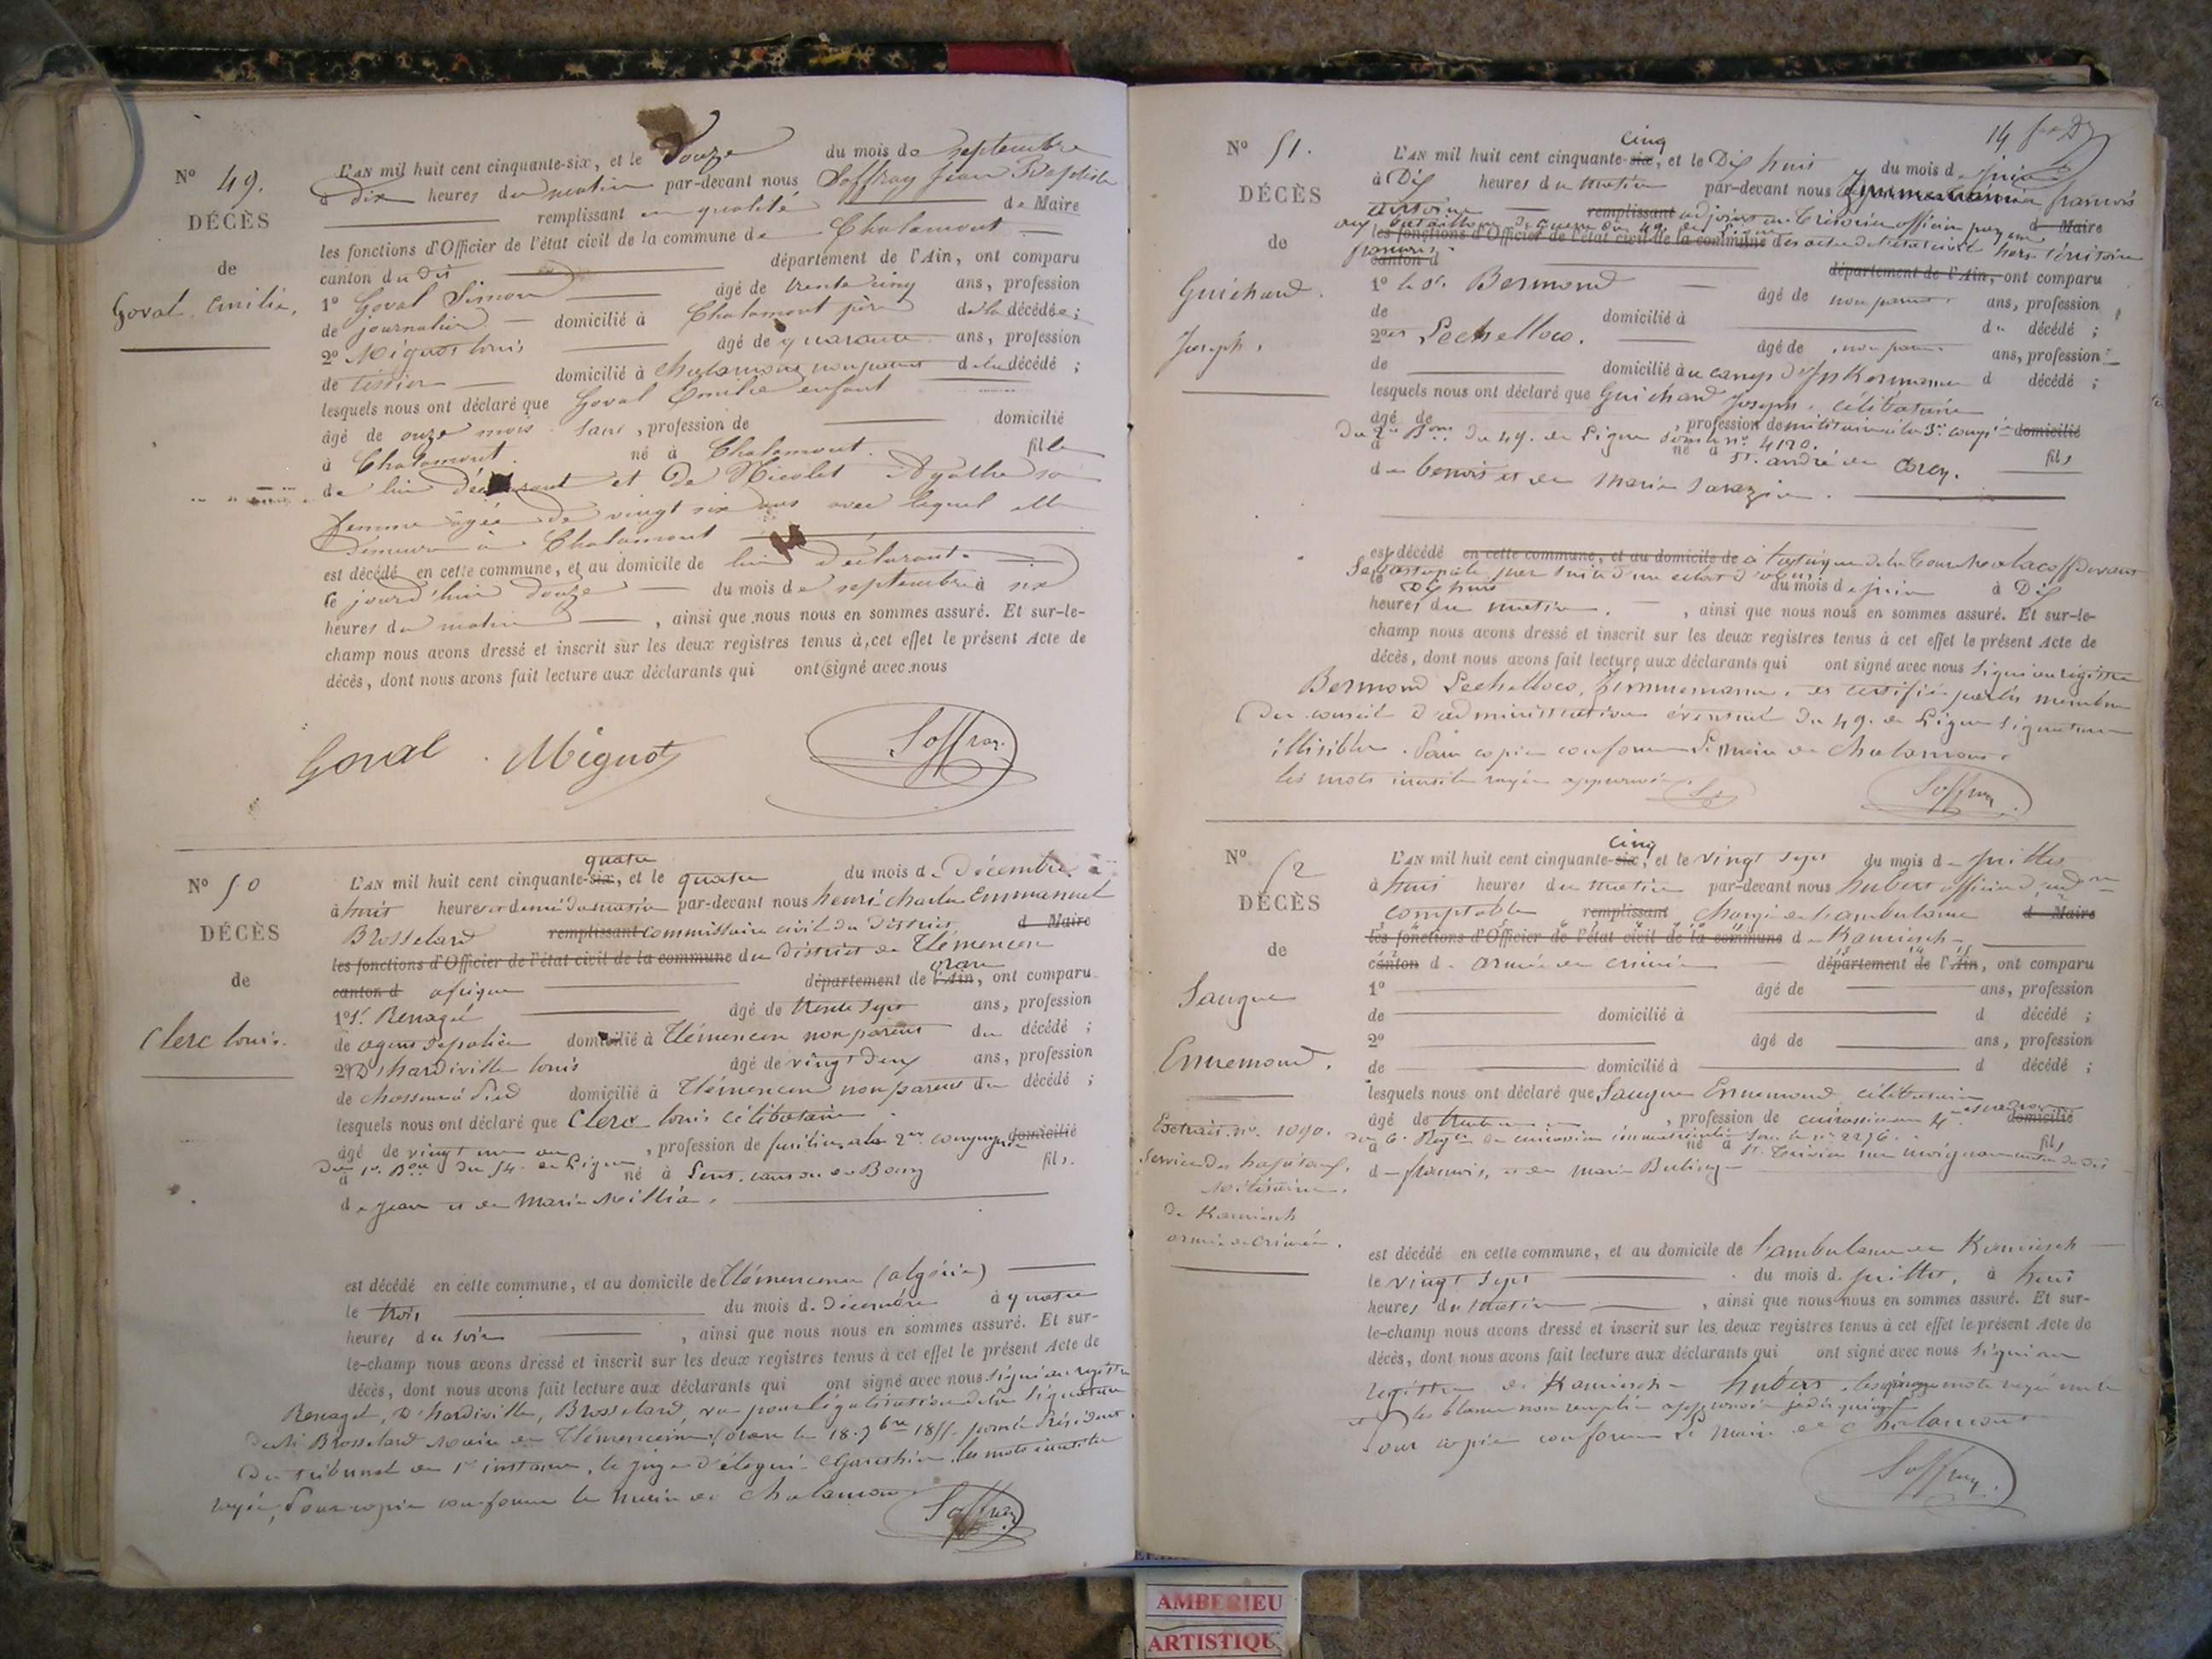 N° 49.
DÉCÈS
de
Goval Emilie,
L'AN mil huit cent cinquante-six, et le Douze du mois de septembre
à dix heures du matin par-devant nous Soffray Jean Baptiste
remplissant en qualité de Maire
les fonctions d'Officier de l'état civil de la commune de Chalamont
canton du dit département de l'Ain, ont comparu
1° Goval Simon âgé de trente cinq ans, profession
de journalier domicilié à Chalamont père de la décédée;
2° Mignot louis âgé de quarante ans, profession
de tissier domicilié à Chalamont non parent de la décédé;
lesquels nous ont déclaré que Goval Emilie enfant
âgé de onze mois sans, profession de domicilié
à Chalamont. né à Chalamont. fille
de lui déclarant et de Nicolet Agathe sa
femme âgée de vingt six ans avec lequel elle
demeure à Chalamont
est décédé en cette commune, et au domicile de lui déclarant.
le jourd'hui douze du mois de septembre à six
heures du matin, ainsi que nous nous en sommes assuré. Et sur-le-
champ nous avons dressé et inscrit sur les deux registres tenus à cet effet le présent Acte de
décès, dont nous avons fait lecture aux déclarants qui ont signé avec nous
Goval Mignot Soffray
N° 50
DÉCÈS
de
Clerc louis.
quatre
L'AN mil huit cent cinquante-six, et le quatre du mois de Décembre
à huit heures et demi du matin par-devant nous henri charles Emmanuel
Brosselard remplissant commissaire civil du District d Maire
les fonctions d'Officier de l'état civil de la commune du District de Tlémencen
oran
canton d afrique département de l'Ain, ont comparu
1° Sr. Renagel âgé de trente sept ans, profession
de agent de police domicilié à Tlémencen non parent du décédé;
2° D'hardiville louis âgé de vingt deux ans, profession
de chasseur à pied domicilié à Tlémencen non parent du décédé;
lesquels nous ont déclaré que Clerc louis célibataire
âgé de vingt un an, profession de fusilier à la 2me compagnie domicilié
du 1er Bon du 54. de Ligne né à fils.
de jean et de Marie Millia.
est décédé en cette commune, et au domicile de Tlémencene (algérie)
le trois du mois de Décembre à quatre
heures du soir, ainsi que nous nous en sommes assuré. Et sur-
le-champ nous avons dressé et inscrit sur les deux registres tenus à cet effet le présent Acte de
décès, dont nous avons fait lecture aux déclarants qui ont signé avec nous signé au registre
Renagel, D'hardiville, Brosselard, vu pour légalisation de la signature
de Mr Brosselard Maire de Tlémencene, oran le 18. 9bre 1855. pour le Président
du tribunal de 1re instance, le juge les mots inutiles
rayés, Pour copie conforme le maire de Chalamont
Soffray
14
N° 51.
DÉCÈS
de
Guichard.
Joseph,
cinq
L'AN mil huit cent cinquante-six, et le Dix huit du mois de juin
à Dix heures du matin par-devant nous Zimmermann françois
antoine remplissant adjoint au Trésorier officier payeur d Maire
aux bataillons de guerre du 49. de Ligne
les fonctions d'Officier de l'état civil de la commune des actes de l'état civil hors territoire
français
canton d département de l'Ain, ont comparu
1° le Sr. Bermond âgé de non parent ans, profession
de domicilié à du décédé;
2° et Lechelloco. âgé de non parent ans, profession
de domicilié à au camp d'Inkermann d décédé;
lesquels nous ont déclaré que Guichard Joseph. célibataire
âgé de, profession de militaire à la 3e compie domicilié
du 2e Bon du 49. de Ligne sous le n° 4120.
à né à St. andré de Corcy. fils
de benoit et de Marie Sarazin.
est décédé en cette commune, et au domicile de à l'attaque de la Tour Malacoff devant
Sévastopole par suite d'un éclat d'obus
le Dix huit du mois de juin à Dix
heures du matin., ainsi que nous nous en sommes assuré. Et sur-le-
champ nous avons dressé et inscrit sur les deux registres tenus à cet effet le présent Acte de
décès, dont nous avons fait lecture aux déclarants qui ont signé avec nous signé au registre
Bermond Lechelloco, Zimmermann, et certifié par les membres
du conseil d'administration éventuel du 49. de Ligne signature
illisible. Pour copie conforme Le maire de Chalamont.
les mots inutiles rayés approuvés. Soffray
N° 52
DÉCÈS
de
Saugue
Ennemond.
Extrait n°. 1090.
Service des hopitaux,
Militaires.
De Kamiesch
armée de Crimée.
cinq
L'AN mil huit cent cinquante-six, et le vingt sept du mois de juillet
à huit heures du matin par-devant nous hubert officier d'adon
comptable remplissant chargé de l'ambulance d Maire
les fonctions d'Officier de l'état civil de la commune d Kamiesch
canton d armée de crimée département de l'Ain, ont comparu
1° âgé de ans, profession
de domicilié à d décédé;
2° âgé de ans, profession
de domicilié à d décédé;
lesquels nous ont déclaré que Saugue Ennemond célibataire
âgé de trente, profession de cuirassier au 4e escadron domicilié
du 6e Regt de cuirassier immatriculé sous le n° 2276.
à né à St. Trivier fils
de françois, et de Marie
est décédé en cette commune, et au domicile de l'ambulance de Kamiesch
le vingt sept du mois de juillet, à huit
heures du matin, ainsi que nous nous en sommes assuré. Et sur-
le-champ nous avons dressé et inscrit sur les deux registres tenus à cet effet le présent Acte de
décès, dont nous avons fait lecture aux déclarants qui ont signé avec nous signé au
registre de Kamiesch hubert, les mots rayés nuls
et les blancs non remplis approuvés
Pour copie conforme Le Maire de Chalamont
Soffray
AMBERIEU
ARTISTIQU